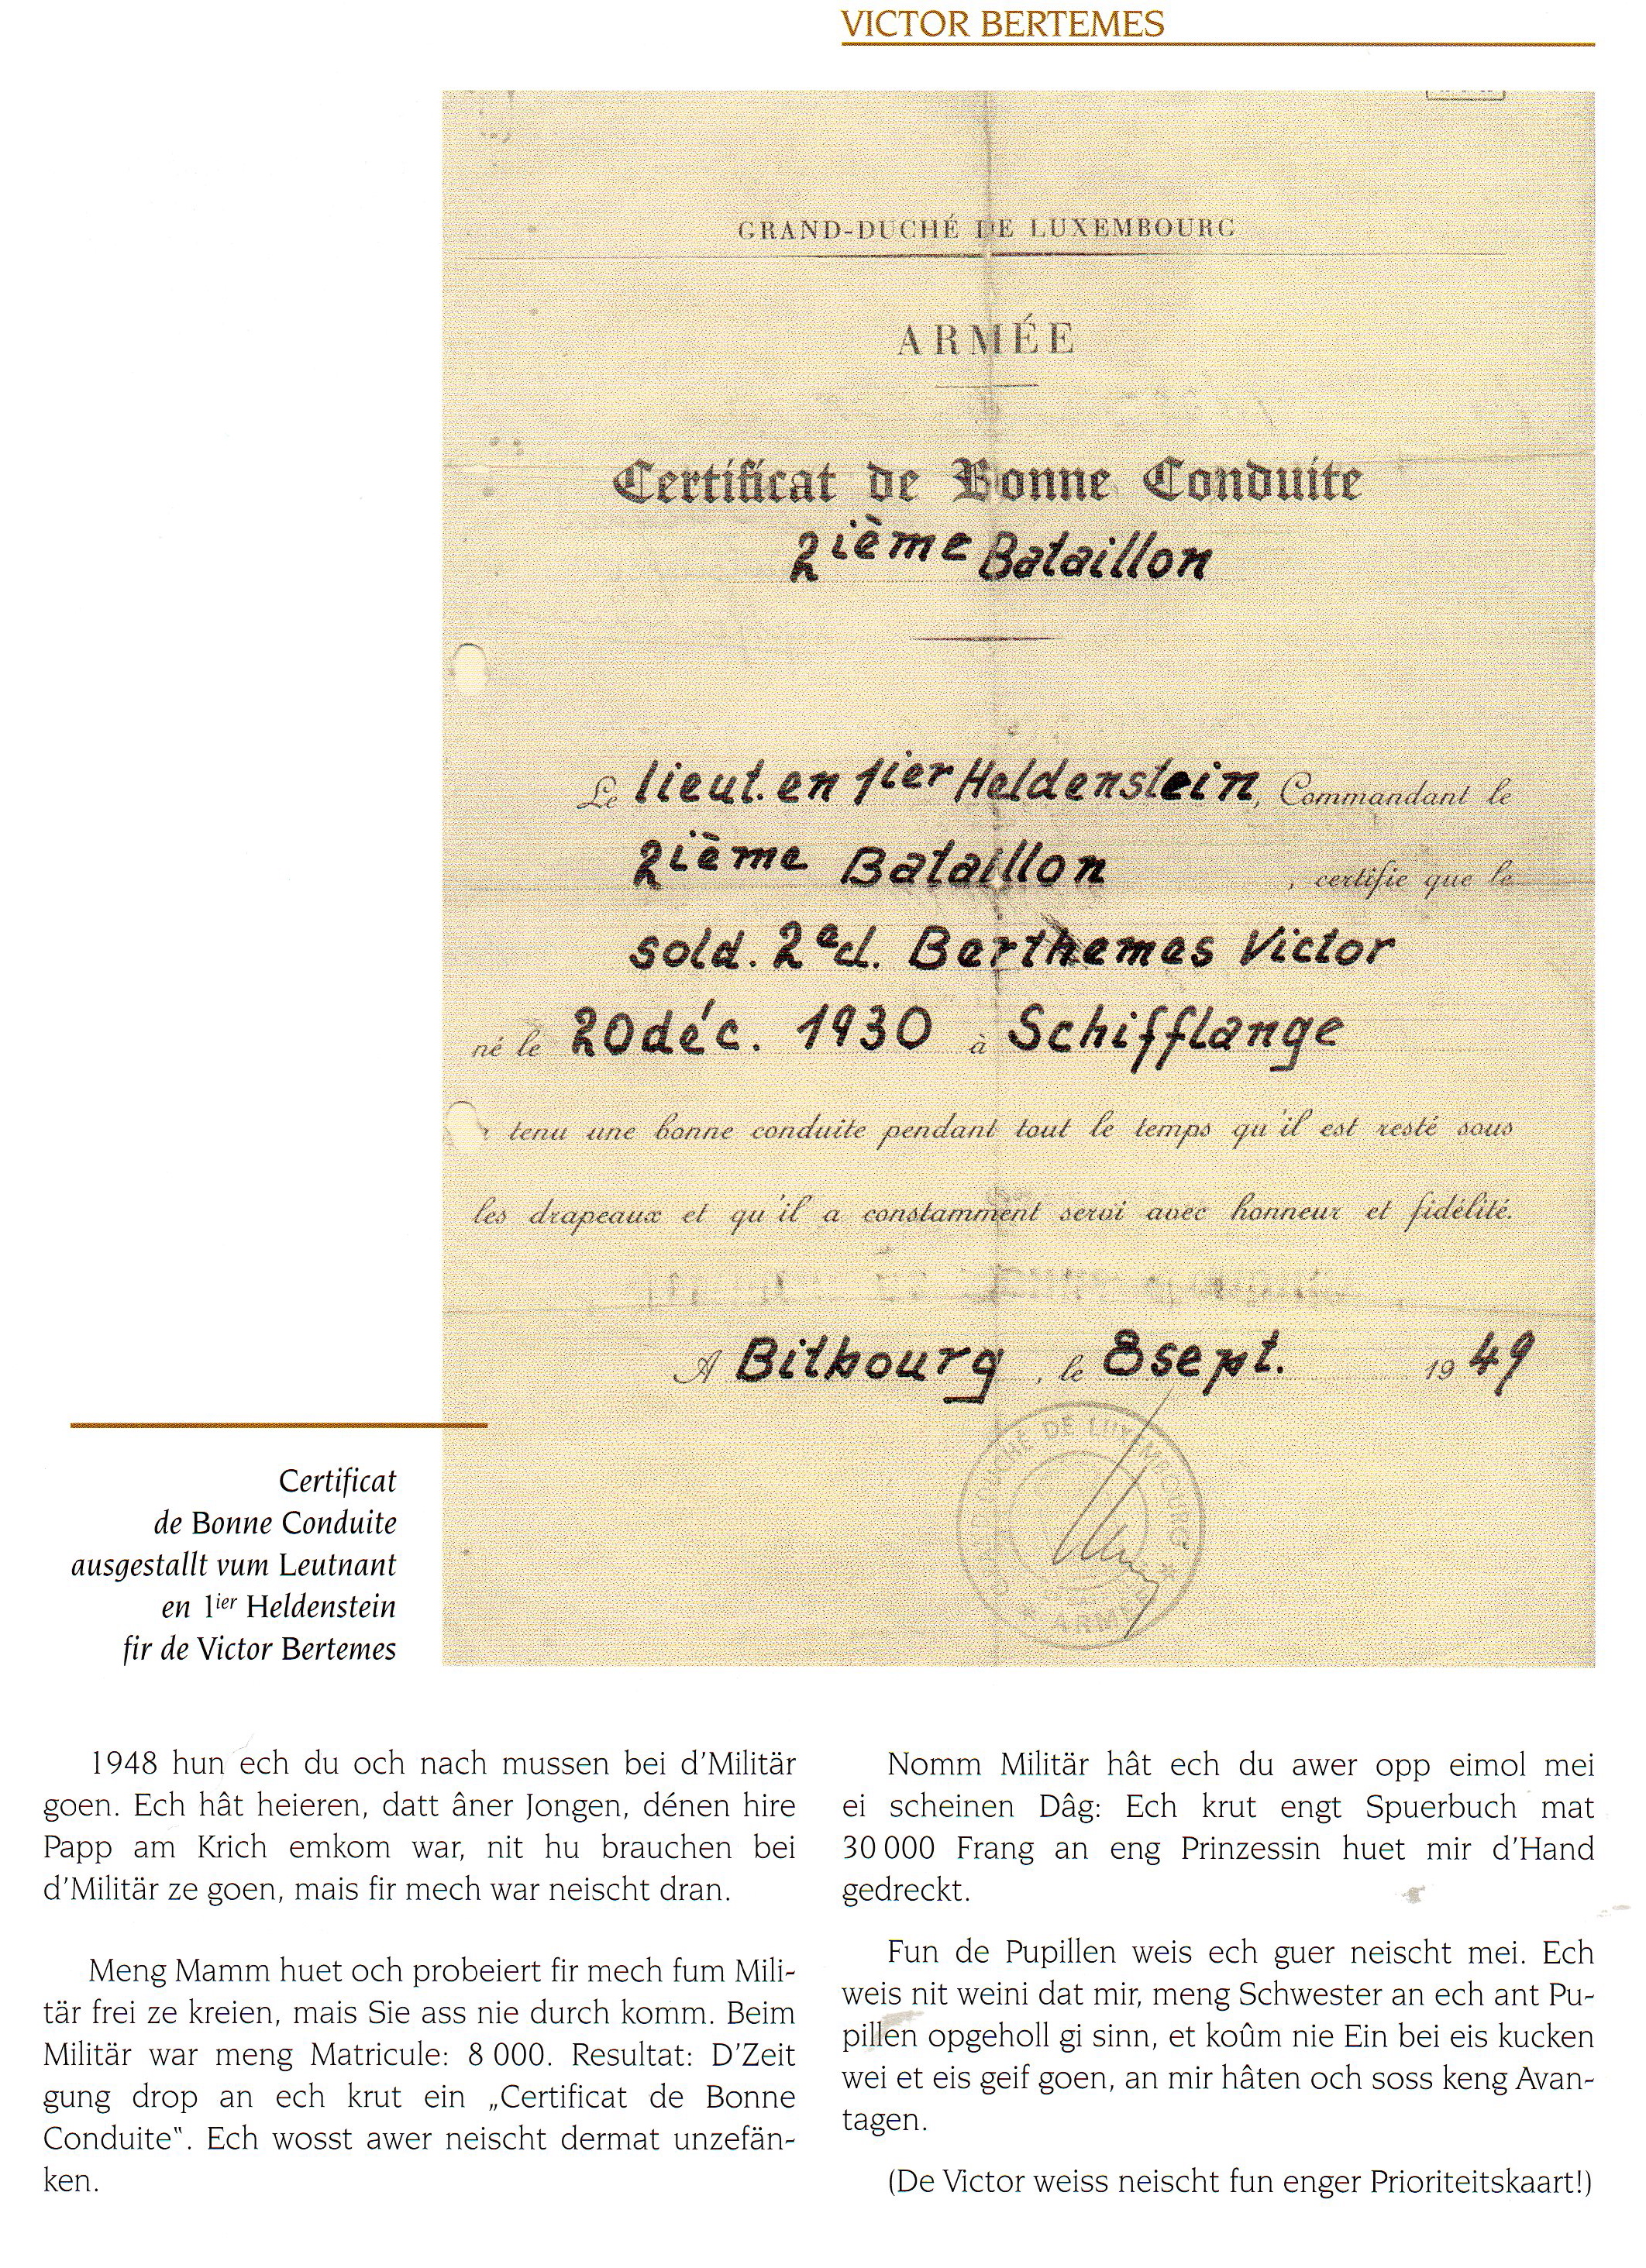 VICTOR BERTEMES
GRAND-DUCHÉ DE LUXEMBOURG
ARMÉE
Certificat de Bonne Conduite
2ième Bataillon
Le lieut. en 1ier Heldenstein, Commandant le
2ième Bataillon, certifie que le
sold. 2e cl. Berthemes Victor
né le 20 déc. 1930 à Schifflange
tenu une bonne conduite pendant tout le temps qu'il est resté sous
les drapeaux et qu'il a constamment servi avec honneur et fidélité.
A Bitbourg, le 8 sept. 1949
GRAND-DUCHÉ DE LUXEMBOURG
* ARMÉE *
Certificat
de Bonne Conduite
ausgestallt vum Leutnant
en 1ier Heldenstein
fir de Victor Bertemes
1948 hun ech du och nach mussen bei d'Militär
goen. Ech hât heieren, datt âner Jongen, dénen hire
Papp am Krich emkom war, nit hu brauchen bei
d'Militär ze goen, mais fir mech war neischt dran.
Meng Mamm huet och probeiert fir mech fum Mili-
tär frei ze kreien, mais Sie ass nie durch komm. Beim
Militär war meng Matricule: 8 000. Resultat: D'Zeit
gung drop an ech krut ein „Certificat de Bonne
Conduite‟. Ech wosst awer neischt dermat unzefän-
ken.
Nomm Militär hât ech du awer opp eimol mei
ei scheinen Dâg: Ech krut engt Spuerbuch mat
30 000 Frang an eng Prinzessin huet mir d'Hand
gedreckt.
Fun de Pupillen weis ech guer neischt mei. Ech
weis nit weini dat mir, meng Schwester an ech ant Pu-
pillen opgeholl gi sinn, et koûm nie Ein bei eis kucken
wei et eis geif goen, an mir hâten och soss keng Avan-
tagen.
(De Victor weiss neischt fun enger Prioriteitskaart!)